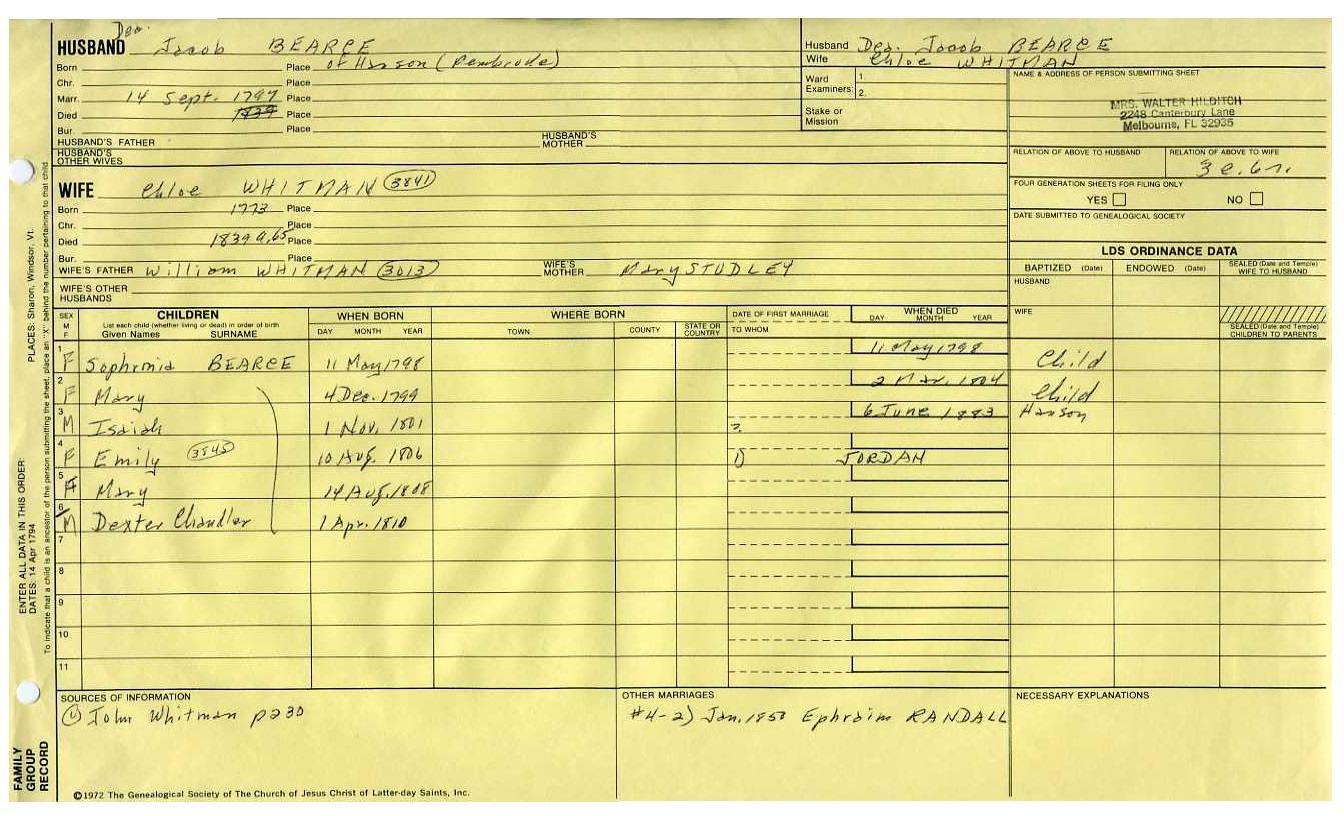 Dea.
HUSBAND Jacob BEARCE
Born Place of Hanson (Pembroke)
Chr. Place
Marr. 14 Sept. 1797 Place
Died 1839 Place
Bur. Place
HUSBAND'S FATHER HUSBAND'S MOTHER
HUSBAND'S OTHER WIVES
Husband Dea. Jacob BEARCE
Wife Chloe WHITMAN
Ward Examiners: 1.
2.
Stake or Mission
NAME & ADDRESS OF PERSON SUBMITTING SHEET
MRS. WALTER HILDITCH
2248 Canterbury Lane
Melbourne, FL 32935
RELATION OF ABOVE TO HUSBAND RELATION OF ABOVE TO WIFE
3c.6r.
FOUR GENERATION SHEETS FOR FILING ONLY
YES NO
DATE SUBMITTED TO GENEALOGICAL SOCIETY
WIFE Chloe WHITMAN 3841
Born 1773 Place
Chr. Place
Died 1839 a.65 Place
Bur. Place
WIFE'S FATHER William WHITMAN 3013 WIFE'S MOTHER Mary STUDLEY
WIFE'S OTHER HUSBANDS
LDS ORDINANCE DATA
BAPTIZED (Date) ENDOWED (Date) SEALED (Date and Temple) WIFE TO HUSBAND
HUSBAND
WIFE
SEALED (Date and Temple) CHILDREN TO PARENTS
SEX M F CHILDREN WHEN BORN WHERE BORN DATE OF FIRST MARRIAGE WHEN DIED
List each child (whether living or dead) in order of birth
Given Names SURNAME DAY MONTH YEAR TOWN COUNTY STATE OR COUNTRY TO WHOM DAY MONTH YEAR
1 F Sophronia BEARCE 11 May 1798 11 May 1798 Child
2 F Mary 4 Dec. 1799 2 Mar. 1804 Child
3 M Isaiah 1 Nov. 1801 ? 6 June 1883 Hanson
4 F Emily 3845 10 Aug. 1806 1) JORDAN
5 F Mary 14 Aug. 1808
6 M Dexter Chandler 1 Apr. 1810
7
8
9
10
11
SOURCES OF INFORMATION
① John Whitman p230
OTHER MARRIAGES
#4-2) Jan. 1850 Ephraim RANDALL
NECESSARY EXPLANATIONS
©1972 The Genealogical Society of The Church of Jesus Christ of Latter-day Saints, Inc.
FAMILY GROUP RECORD
ENTER ALL DATA IN THIS ORDER:
DATES: 14 Apr 1794
PLACES: Sharon, Windsor, Vt.
To indicate that a child is an ancestor of the person submitting the sheet, place an "X" behind the number pertaining to that child